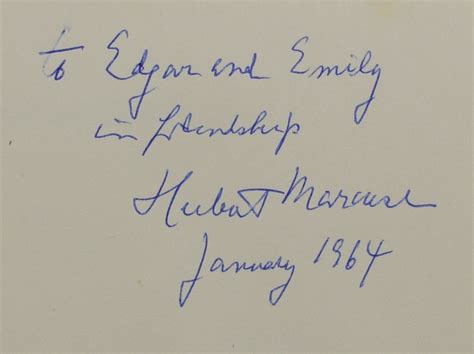 to Edgar and Emily
in friendship
Herbert Marcuse
January 1964